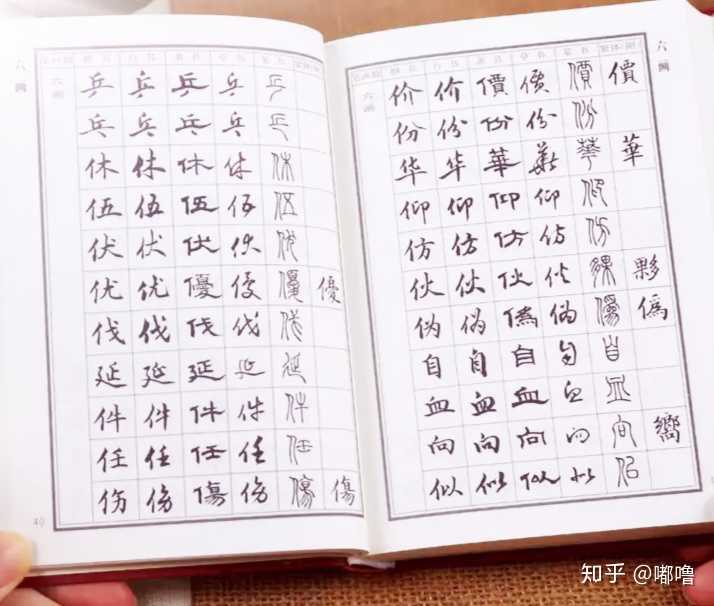 六画
笔画数 楷书 行书 隶书 草书 篆书 繁体(附)
六画
乒 乒 乒 乒 乒
乓 乓 乓 乓 乓
休 休 休 休 休
伍 伍 伍 伍 伍
伏 伏 伏 伏 伏
优 优 優 优 優 優
伐 伐 伐 伐 伐
延 延 延 延 延
件 件 件 件 件
任 任 任 任 任
伤 伤 傷 伤 傷 傷
40
六画
笔画数 楷书 行书 隶书 草书 篆书 繁体(附)
六画
价 价 價 價 價 價
份 份 份 份 份
华 华 華 華 華 華
仰 仰 仰 仰 仰
仿 仿 仿 仿 仿
伙 伙 伙 伙 夥 夥
伪 伪 僞 伪 僞 僞
自 自 自 自 自
血 血 血 血 血
向 向 向 向 向 嚮
似 似 似 似 似
知乎 @嘟噜